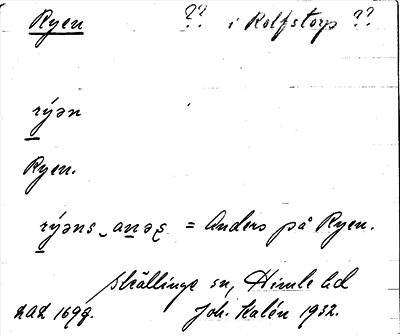 Ryen ?? i Rolfstorp ??
rýən
Ryen.
rýəns anəʂ = Anders på Ryen.
Skällinge sn, Himle hd
Joh. Kalén 1932.